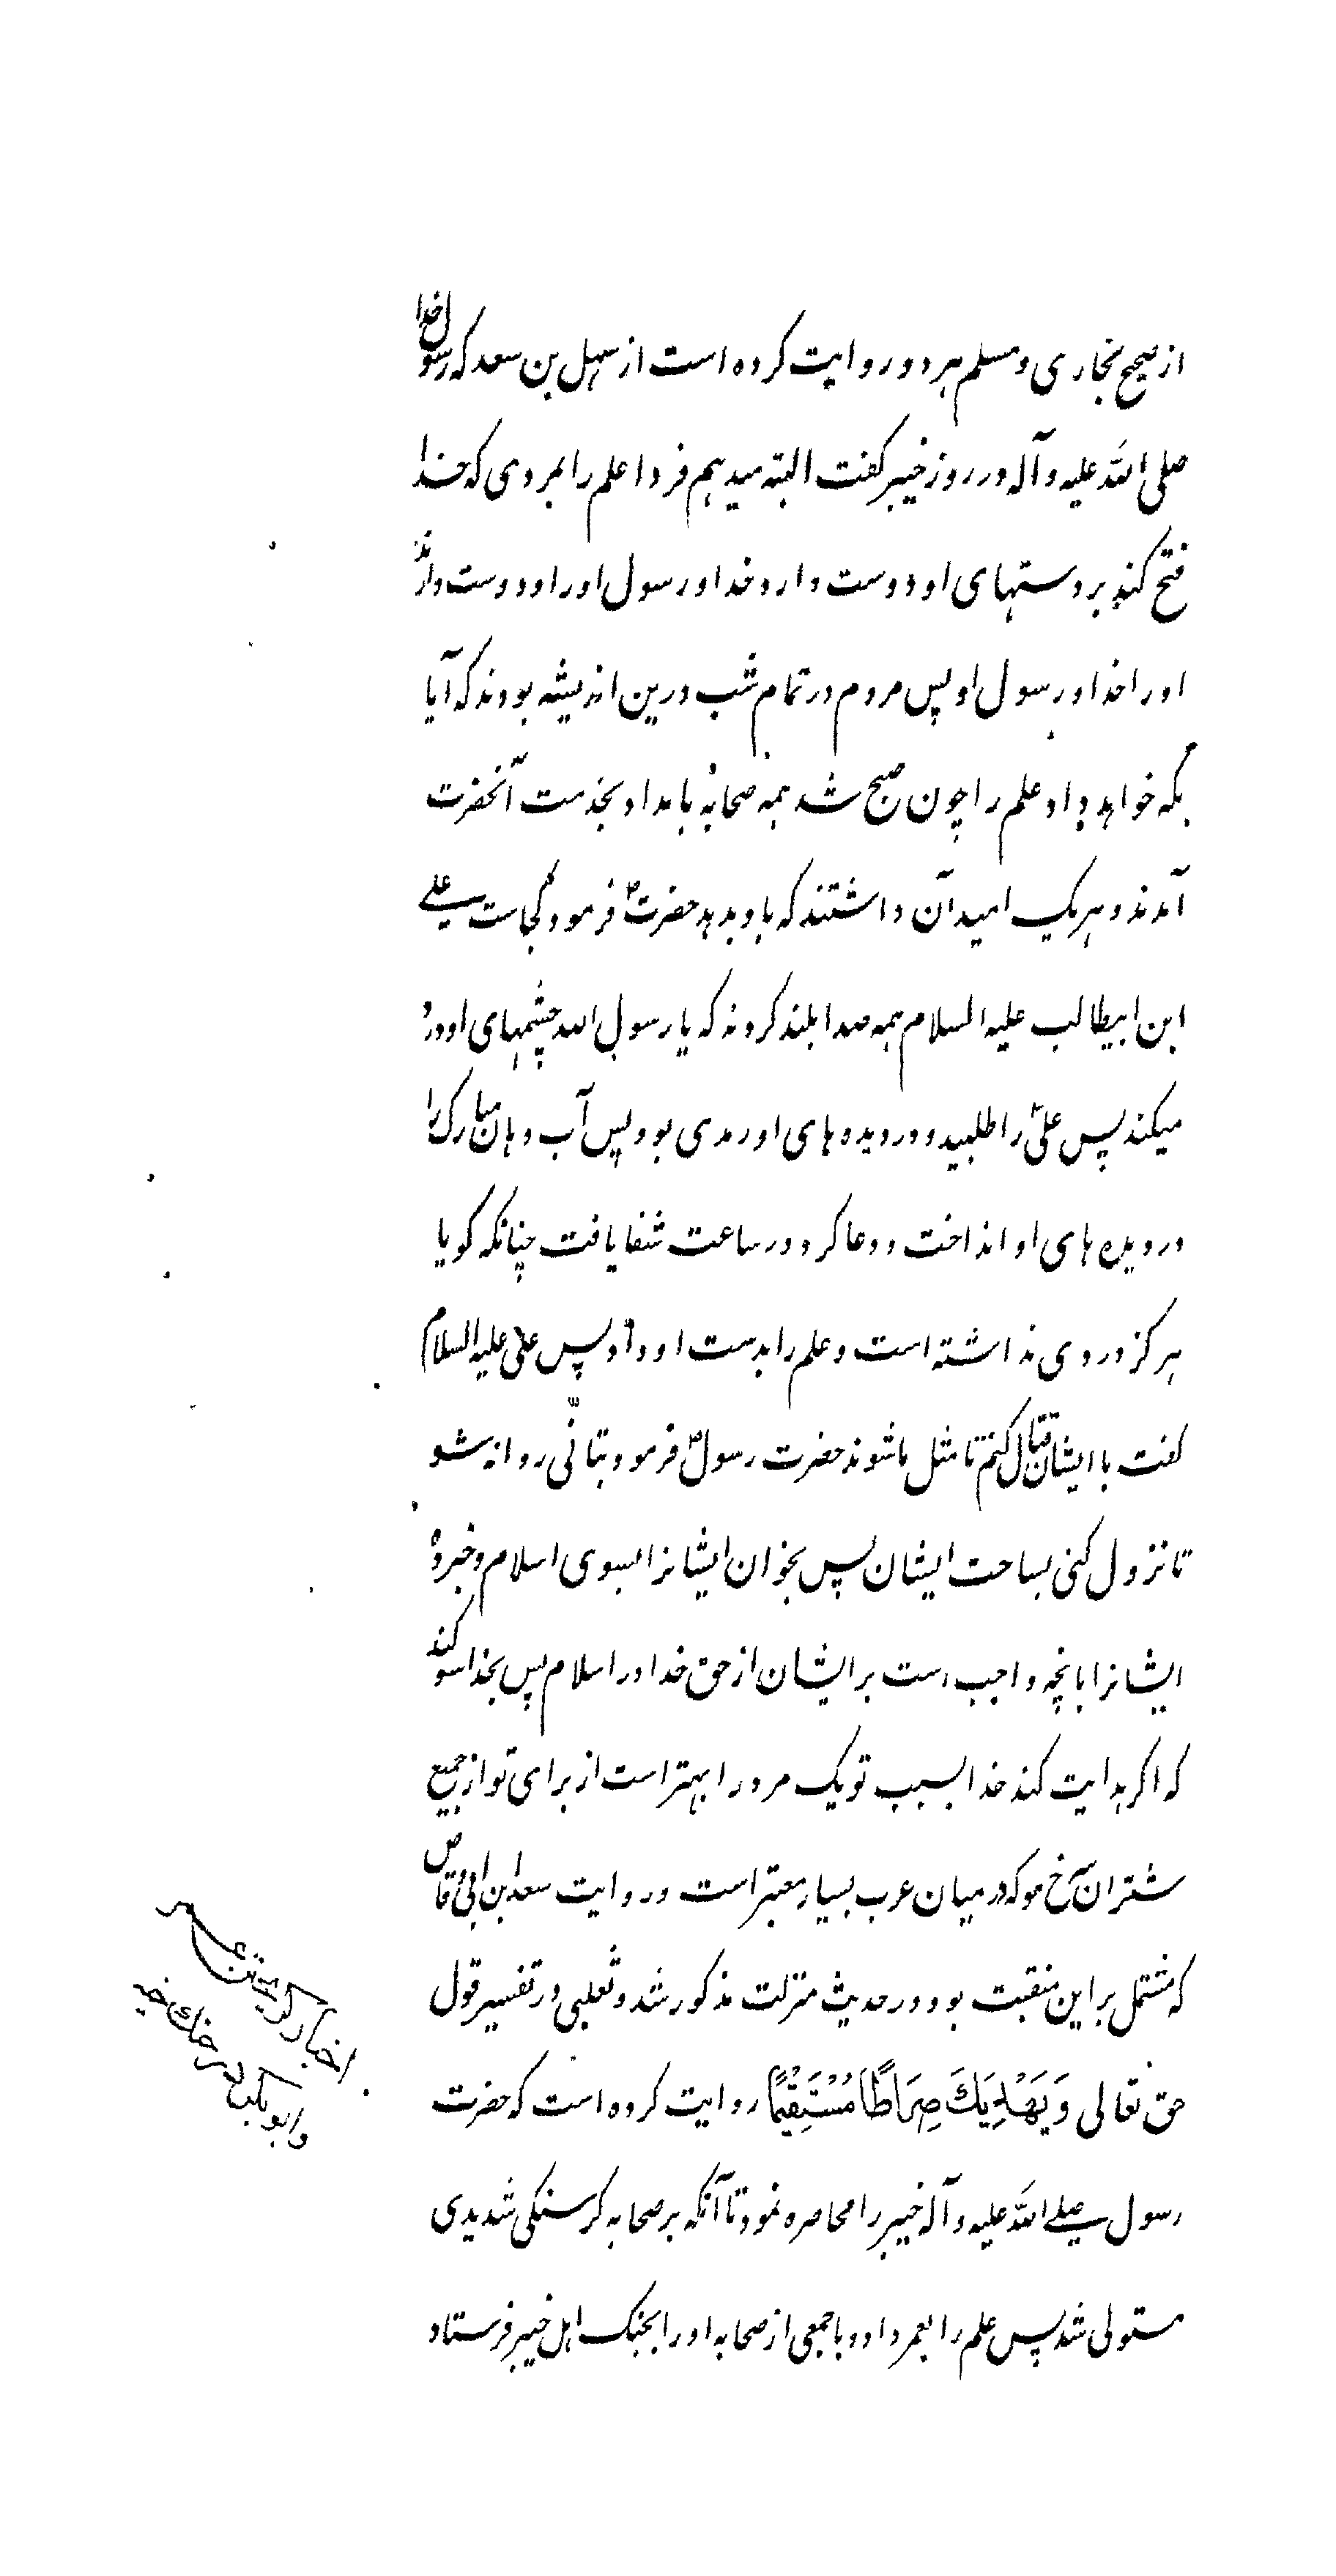 از صحیح بخاری و مسلم هر دو روایت کرده است از سهل بن سعد که رسول خدا
صلی الله علیه و آله در روز خیبر کفت البته میدهم فردا علم را بمردی که خدا
فتح کند بر دستهای او دوست دارد خدا و رسول او را و دوست دارند
او را خدا و رسول او پس مردم در تمام شب درین اندیشه بودند که آیا
بکه خواهد داد علم را چون صبح شد همه صحابه بامداد بخدمت آنحضرت
آمدند و هریک امید آن داشتند که باو بدهد حضرت ص فرمود کجاست علی
ابن ابیطالب علیه السلام همه صدا بلند کردند که یا رسول الله چشمهای او درد
میکند پس علی را طلبید و در دیده های او رمدی بود پس آب دهان مبارک را
در دیده های او انداخت و دعا کرد در ساعت شفا یافت چنانکه کویا
هرکز دردی نداشته است و علم را بدست او داد پس علی علیه السلام
کفت با ایشان قتال کنم تا مثل ما شوند حضرت رسول ص فرمود بتانّی روانه شو
تا نزول کنی بساحت ایشان پس بخوان ایشانرا بسوی اسلام و خبر ده
ایشانرا بانچه واجب است بر ایشان از حق خدا در اسلام پس بخدا سوکند
که اکر هدایت کند خدا بسبب تو یک مرد را بهتر است از برای تو از جمیع
شتران سرخ مو که در میان عرب بسیار معتبر است و روایت سعد ابن ابی وقاص
که مشتمل بر این منقبت بود در حدیث منزلت مذکور شد و ثعلبی در تفسیر قول
حق تعالی وَيَهْدِيَكَ صِرَاطًا مُسْتَقِيمًا روایت کرده است که حضرت
رسول صلی الله علیه و آله خیبر را محاصره نمود تا آنکه بر صحابه کرسنکی شدیدی
مستولی شد پس علم را بعمر داد و با جمعی از صحابه او را بجنک اهل خیبر فرستاد
اخبار کریختن عمر
و ابوبکر در جنک خیبر